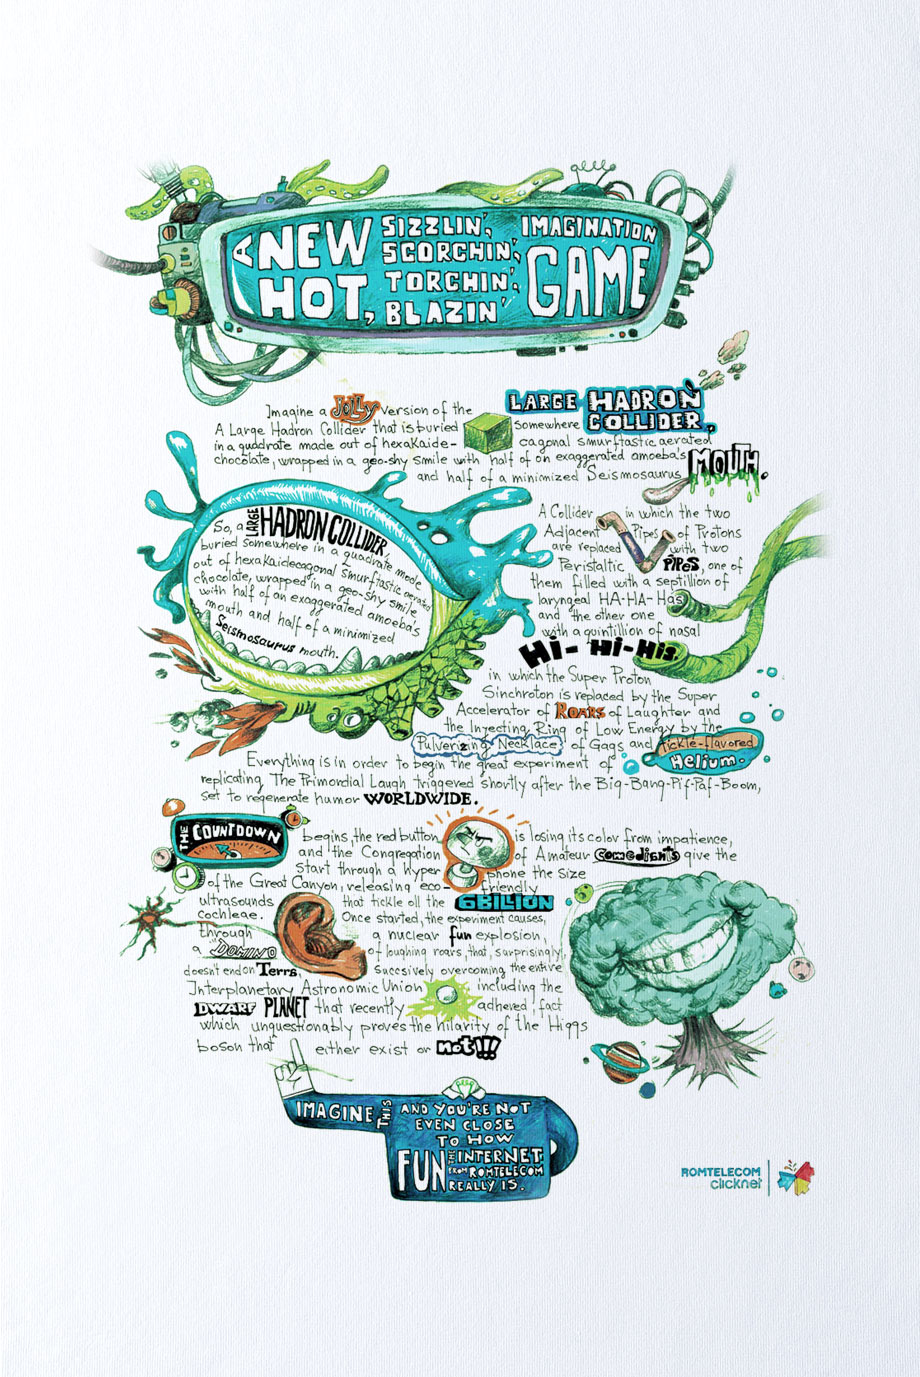 A NEW HOT, SIZZLIN', SCORCHIN', TORCHIN', BLAZIN' IMAGINATION GAME
Imagine a Jolly version of the LARGE HADRON COLLIDER,
A Large Hadron Collider that is buried somewhere
in a quadrate made out of hexaKaide- cagonal smurftastic aerated
chocolate, wrapped in a geo-shy smile with half of an exaggerated amoeba's
and half of a minimized Seismosaurus MOUTH.
So, a LARGE HADRON COLLIDER,
buried somewhere in a quadrate made
out of hexaKaidecagonal smurftastic aerated
chocolate, wrapped in a geo-shy smile
with half of an exaggerated amoeba's
mouth and half of a minimized
Seismosaurus mouth.
A Collider in which the two
Adjacent Pipes of Protons
are replaced with two
Peristaltic PiPes, one of
them filled with a septillion of
laryngeal HA-HA-Has
and the other one
with a quintillion of nasal
Hi-Hi-His.
in which the Super Proton
Sinchroton is replaced by the Super
Accelerator of ROARS of Laughter and
the Injecting Ring of Low Energy by the
Pulverizing Necklace of Gags and tickle-flavored
Helium.
Everything is in order to begin the great experiment of
replicating The Primordial Laugh triggered shortly after the Big-Bang-Pif-Paf-Boom,
set to regenerate humor WORLDWIDE.
THE COUNTDOWN begins, the red button is losing its color from impatience,
and the Congregation of Amateur comediants give the
start through a hyper phone the size
of the Great Canyon, releasing eco- friendly
ultrasounds that tickle all the 6BILLION
cochleae. Once started, the experiment causes,
through a nuclear fun explosion,
a "DOMINO" of loughing roars, that, surprisingly,
doesn't end on Terra, succesively overcoming the entire
Interplanetary Astronomic Union including the
DWARF PLANET that recently adhered, fact
which unquestionably proves the hilarity of the Higgs
boson that either exist or not!!!
IMAGINE THIS AND YOU'RE NOT
EVEN CLOSE
TO HOW
FUN THE INTERNET
FROM ROMTELECOM
REALLY IS.
ROMTELECOM
clicknet